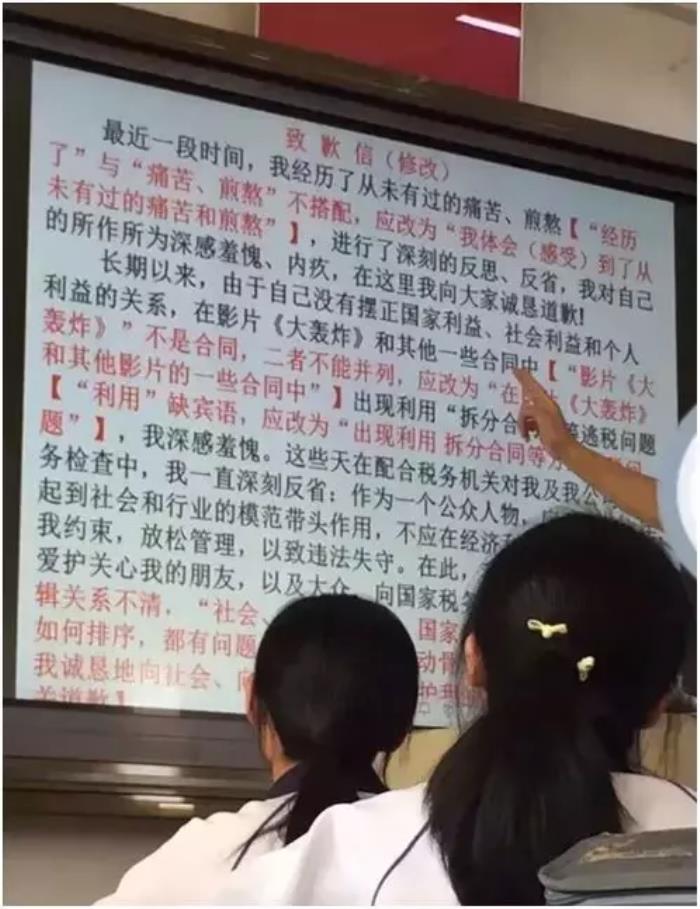 致歉信（修改）
最近一段时间，我经历了从未有过的痛苦、煎熬【“经历
了”与“痛苦、煎熬”不搭配，应改为“我体会（感受）到了从
未有过的痛苦和煎熬”】，进行了深刻的反思、反省，我对自己
的所作所为深感羞愧、内疚，在这里我向大家诚恳道歉!
长期以来，由于自己没有摆正国家利益、社会利益和个人
利益的关系，在影片《大轰炸》和其他一些合同中【“影片《大
轰炸》”不是合同，二者不能并列，应改为“在 《大轰炸》
和其他影片的一些合同中”】出现利用“拆分合 逃税问题
【“利用”缺宾语，应改为“出现利用 拆分合同等
题”】，我深感羞愧。这些天在配合税务机关对我及我公
务检查中，我一直深刻反省：作为一个公众人物，
起到社会和行业的模范带头作用，不应在经济
我约束，放松管理，以致违法失守。在此，
爱护关心我的朋友，以及大众、向国家税务
辑关系不清，“社会、 国家
如何排序，都有问题 动骨
我诚恳地向社会、 护
关道歉】